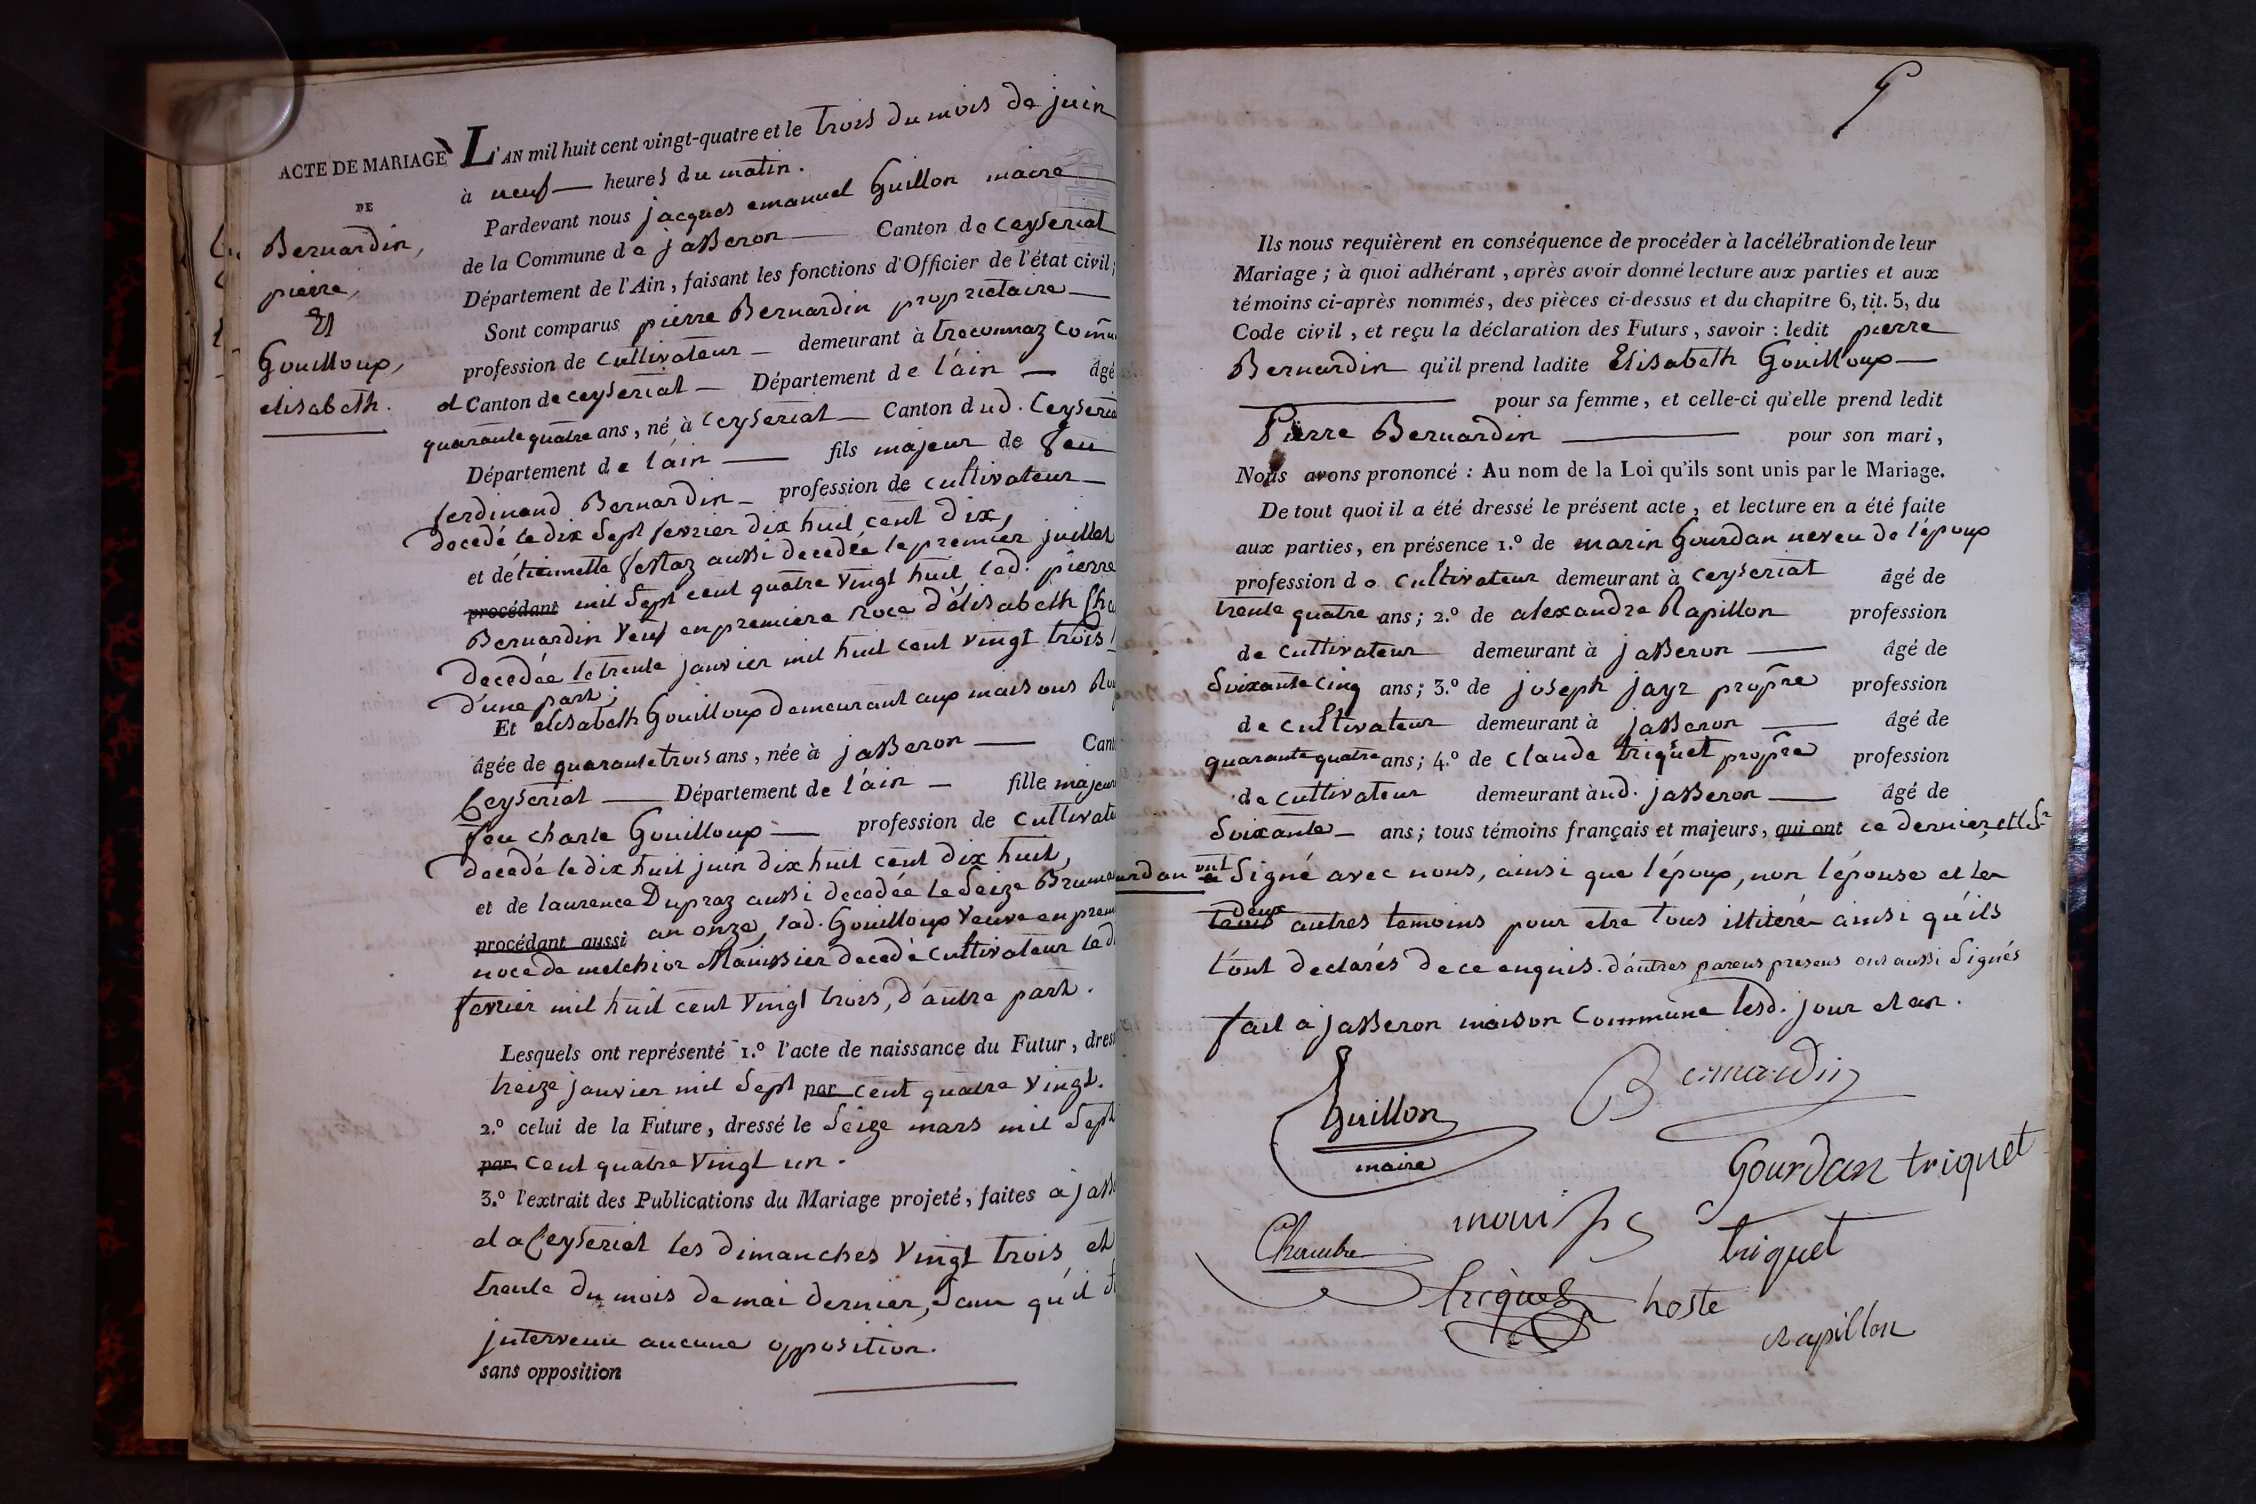 ACTE DE MARIAGE
DE
Bernardin,
pierre,
Et
Gouilloup,
elisabeth.
L'AN mil huit cent vingt-quatre et le trois du mois de juin
à neuf heures du matin.
Pardevant nous jacques emanuel Guillon maire
de la Commune de jasseron Canton de Ceyseriat
Département de l'Ain, faisant les fonctions d'Officier de l'état civil;
Sont comparus pierre Bernardin proprietaire
profession de cultivateur demeurant à treconnaz comu
et Canton de ceyseriat Département de l'ain âgé
quarante quatre ans, né à Ceyseriat Canton dud. Ceyseria
Département de l'ain fils majeur de feu
ferdinand Bernardin profession de cultivateur
decedé le dix sept fevrier dix huit cent dix,
et d'étiennette festaz aussi decedée le premier juillet
procédant mil sept cent quatre vingt huit, led. pierre
Bernardin veuf en premiere noce d'élisabeth
decedée le trente janvier mil huit cent vingt trois
d'une part;
Et elisabeth Gouilloup demeurant aux maisons
âgée de quarante trois ans, née à jasseron Cant
Ceyseriat Département de l'ain fille majeur
feu charle Gouilloup profession de cultivate
decedé le dix huit juin dix huit cent dix huit,
et de laurence Dupraz aussi decedée le seize Bruma
procédant aussi an onze, lad. Gouilloup veuve en prem
noce de melchior Manissier decedé cultivateur le d
fevrier mil huit cent vingt trois, d'autre part.
Lesquels ont représenté 1.º l'acte de naissance du Futur, dres
treize janvier mil sept par cent quatre vingt.
2.º celui de la Future, dressé le seize mars mil sept
par cent quatre vingt un.
3.º l'extrait des Publications du Mariage projeté, faites à jass
et a Ceyseriat les dimanches vingt trois et
trente du mois de mai dernier, sans qu'il
intervenu aucune opposition.
sans opposition
Ils nous requièrent en conséquence de procéder à la célébration de leur
Mariage; à quoi adhérant, après avoir donné lecture aux parties et aux
témoins ci-après nommés, des pièces ci-dessus et du chapitre 6, tit. 5, du
Code civil, et reçu la déclaration des Futurs, savoir: ledit pierre
Bernardin qu'il prend ladite Elisabeth Gouilloup
pour sa femme, et celle-ci qu'elle prend ledit
Pierre Bernardin pour son mari,
Nous avons prononcé: Au nom de la Loi qu'ils sont unis par le Mariage.
De tout quoi il a été dressé le présent acte, et lecture en a été faite
aux parties, en présence 1.º de marin Gourdan neveu de l'époup
profession de cultivateur demeurant à Ceyseriat âgé de
trente quatre ans; 2.º de alexandre Rapillon profession
de cultivateur demeurant à jasseron âgé de
soixante cinq ans; 3.º de joseph jayr propre profession
de cultivateur demeurant à jasseron âgé de
quarante quatre ans; 4.º de Claude triquet propre profession
de cultivateur demeurant àud. jasseron âgé de
soixante ans; tous témoins français et majeurs, qui ont ce dernier, et le Sr
urdan ont a signé avec nous, ainsi que l'époup, non l'épouse et les
trois deux autres temoins pour etre tous illiteré ainsi qu'ils
l'ont declarés de ce enquis. d'autres parens presens ont aussi signés
fait a jasseron maison Commune lesd. jour et an.
Guillon
maire
Bernardin
Gourdan triquet
Chambre
triquet
triquet
hoste
Rapillon